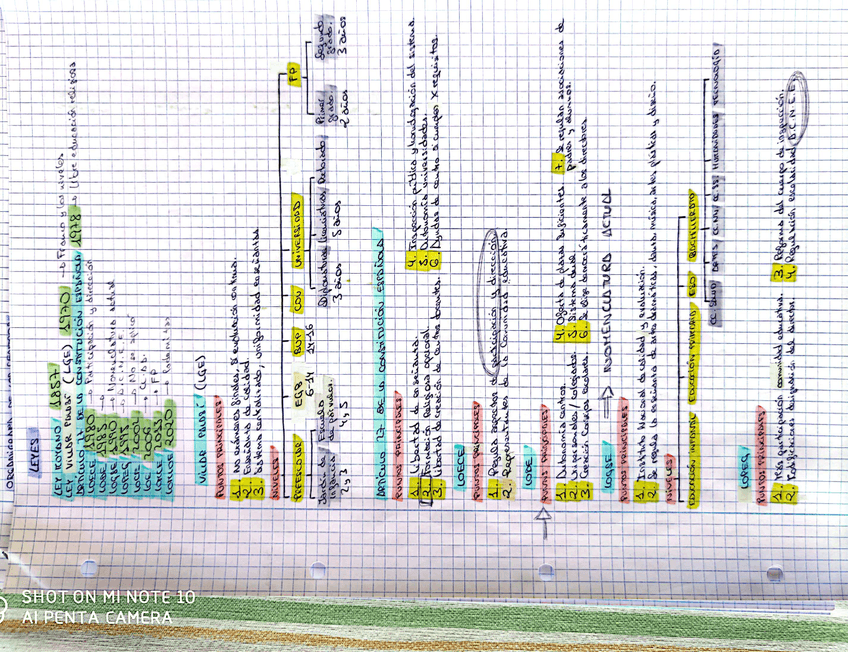 LEYES
LEY MOYANO / 1857
LEY VILLAR PALASÍ (LGE) 1970 → Franco y los niveles
ARTÍCULO 27 DE LA CONSTITUCIÓN ESPAÑOLA 1978 → Libre educación religiosa
LOECE 1980 → Participación y dirección
LODE 1985
LOGSE 1990 → Nomenclatura actual
LOPEG 1995 → D.C.N.E.E.
LOCE 2002 → No se aplicó
LOE 2006
LOMCE 2013 → FP
LOMLOE 2020
VILLAR PALASÍ (LGE)
PUNTOS PRINCIPALES
1. No exámenes finales, sí evaluación continua.
2. Enseñanza de calidad.
3. Sistema centralizado, uniformidad enseñantes
NIVELES
PREESCOLAR EGB BUP COU UNIVERSIDAD FP
Jardín de Infancia 2 y 3
Escuela de párvulos 4 y 5
6-14
14-16
Diplomatura 3 años
Licenciatura 5 años
Doctorado
Primer grado. 2 años
Segundo grado. 3 años
ARTÍCULO 27 DE LA CONSTITUCIÓN ESPAÑOLA
PUNTOS PRINCIPALES
1. Libertad de enseñanza.
2. Formación Religiosa opcional.
3. Libertad de creación de centros docentes.
4. Inspección pública y homologación del sistema.
5. Autonomía universidades.
6. Ayudas de centro si cumplen X requisitos.
LOECE
PUNTOS PRINCIPALES
1. Regula aspectos de participación y dirección.
2. Representantes de la Comunidad educativa.
LODE
PUNTOS PRINCIPALES
1. Autonomía centros.
2. Unipersonales / colegiados.
3. Creación consejos escolares.
4. Oferta de plazas suficientes.
5. Sistema dual.
6. Se elige democráticamente a los directores.
7. Se regulan asociaciones de padres y alumnos.
LOGSE → NOMENCLATURA ACTUAL
PUNTOS PRINCIPALES
1. Instituto Nacional de calidad y evaluación.
2. Se regula la enseñanza de artes dramáticas, danza, música, artes plásticas y diseño.
NIVELES
EDUCACIÓN INFANTIL EDUCACIÓN PRIMARIA ESO BACHILLERATO
CC. SALUD ARTES CC. NN CC. SS HUMANIDADES TECNOLOGÍA
LOPEG
PUNTOS PRINCIPALES
1. Más participación comunidad educativa.
2. designación del director.
3. Reforma del cuerpo de inspección.
4. Regulación escolaridad D.C.N.E.E.
SHOT ON MI NOTE 10
AI PENTA CAMERA